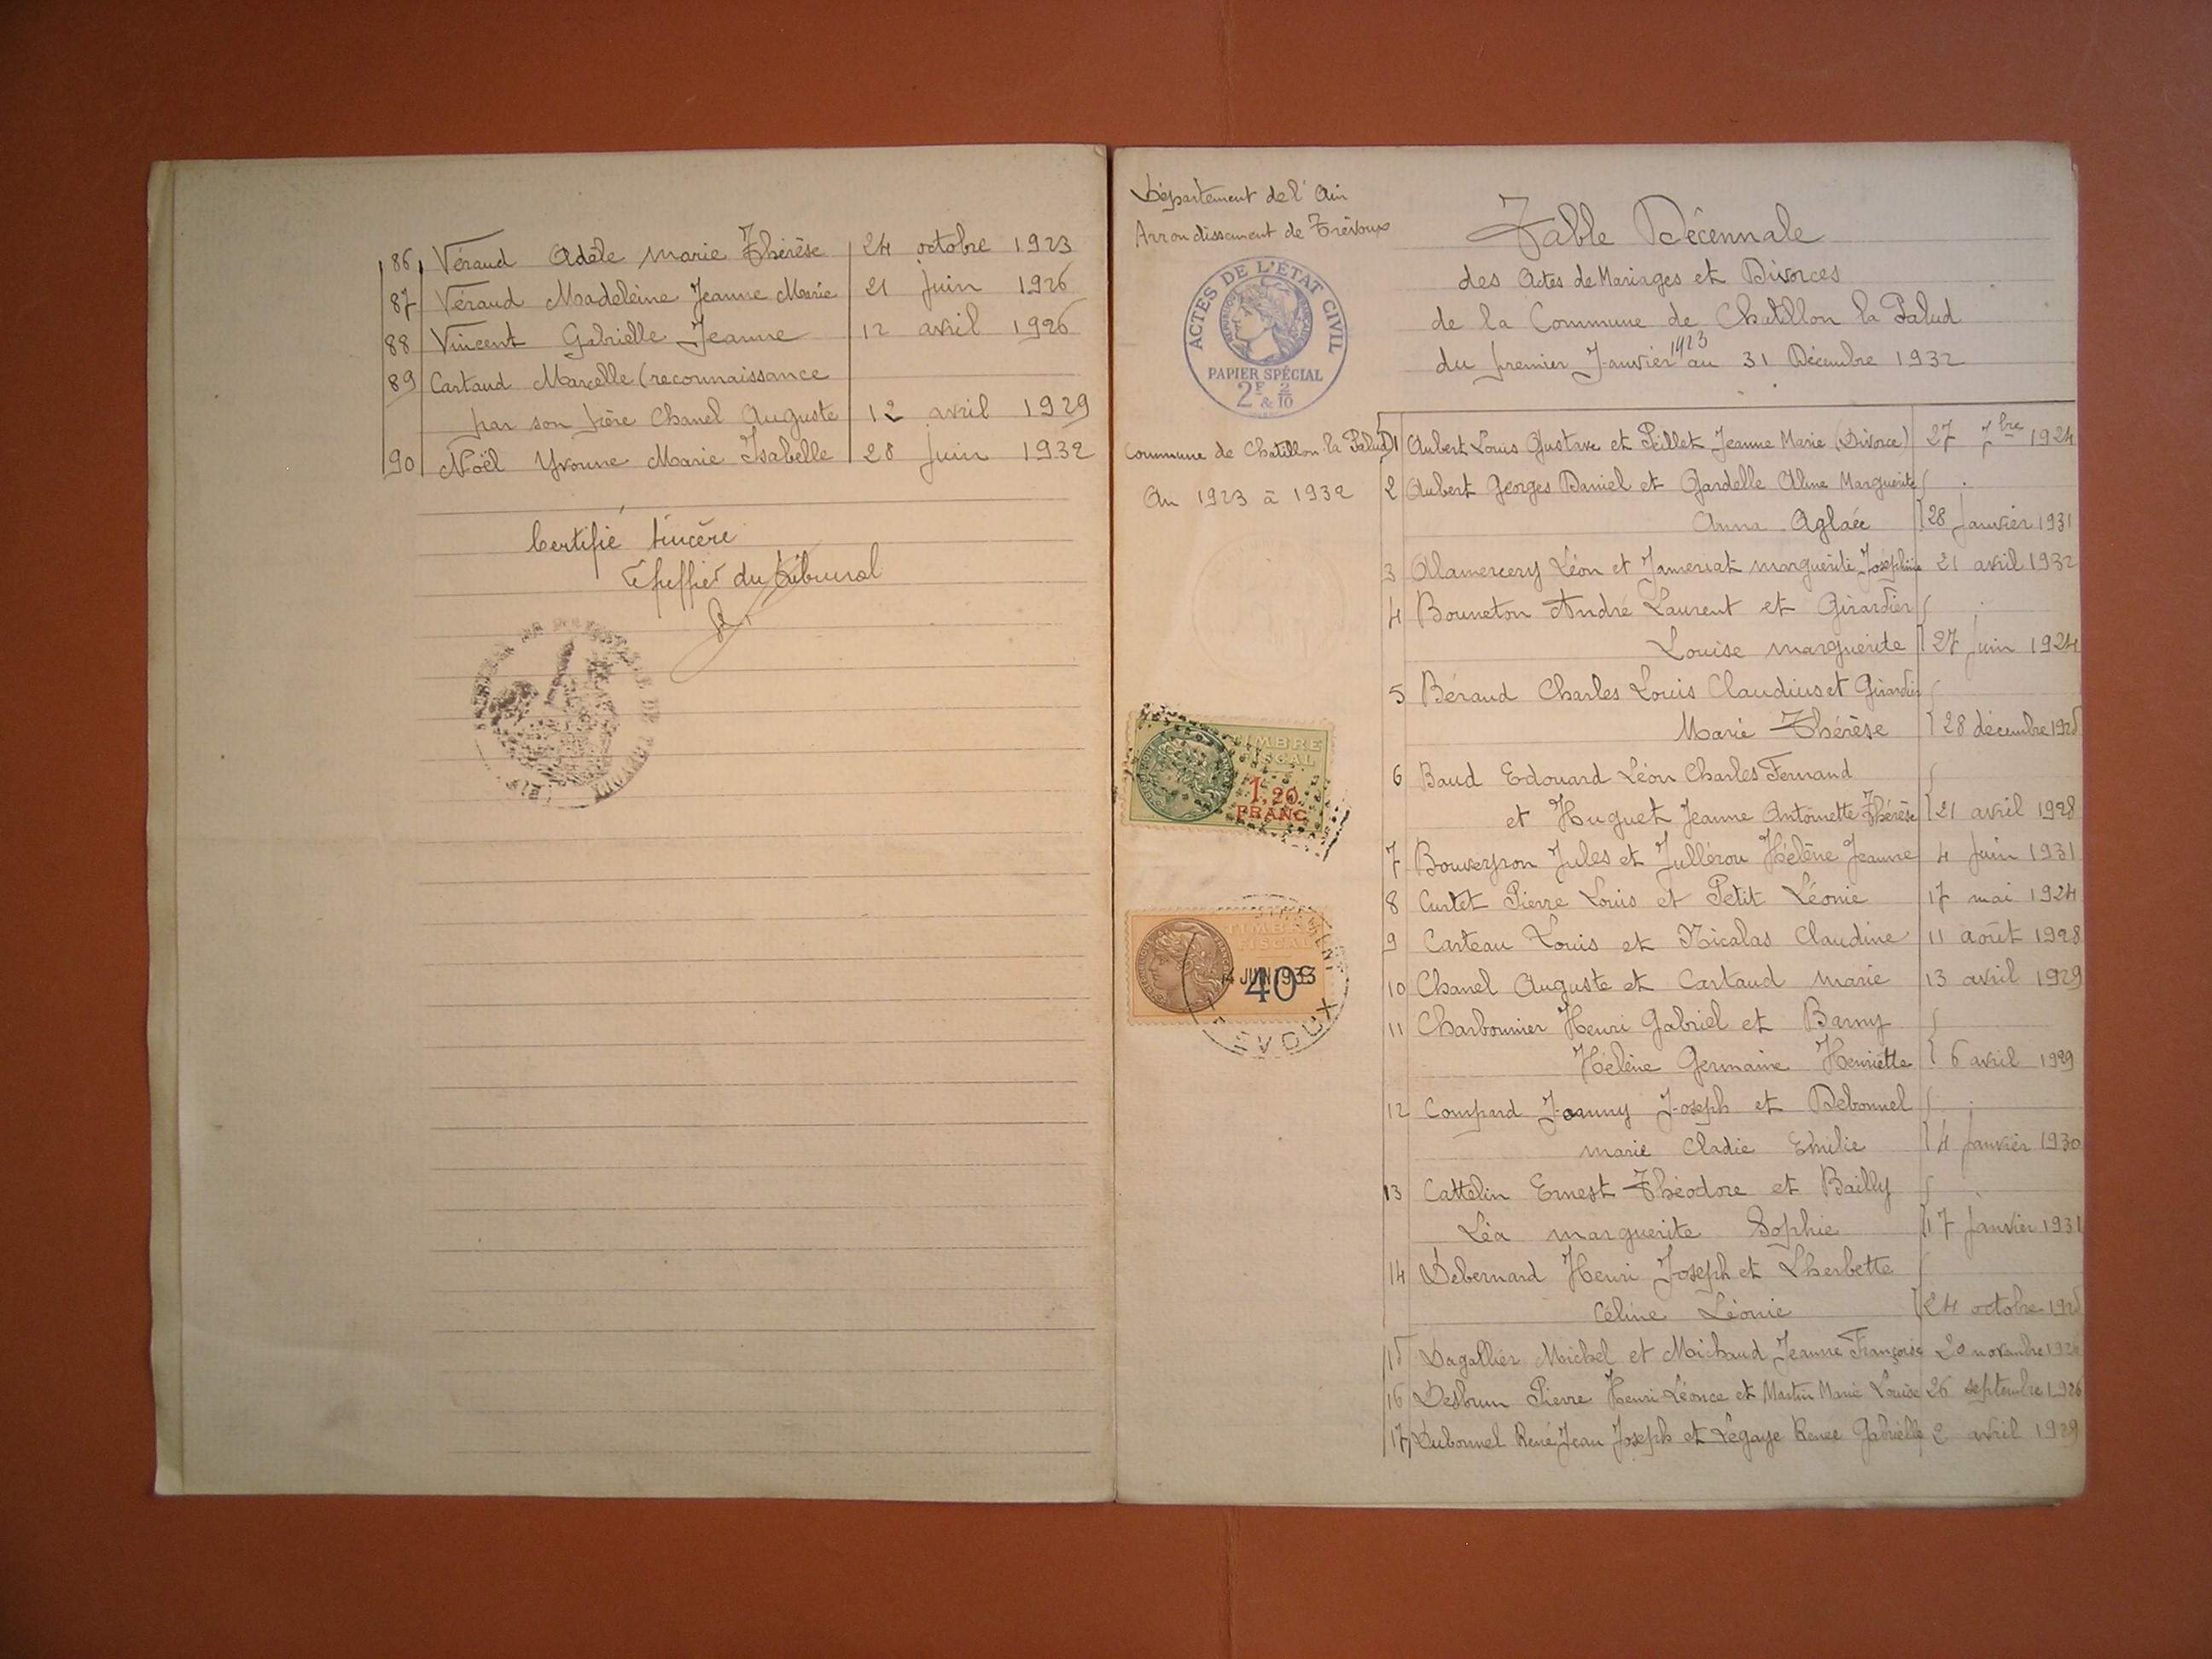 86 Véraud Adèle Marie Thérèse 24 octobre 1923
87 Véraud Madeleine Jeanne Marie 21 Juin 1926
88 Vincent Gabrielle Jeanne 12 avril 1926
89 Cartaud Marcelle (reconnaissance
par son père Chanel Auguste 12 avril 1929
90 Noël Yvonne Marie Isabelle 28 Juin 1932
Certifié sincère
Le greffier du tribunal
Département de l'Ain
Arrondissement de Trévoux
ACTES DE L'ÉTAT CIVIL
PAPIER SPÉCIAL
2F & 2/10
Commune de Chatillon la Palud
An 1923 à 1932
TIMBRE
FISCAL
1,20
FRANC
TIMBRE
FISCAL
40c
JUIN 1933
Table Décennale
des Actes de Mariages et Divorces
de la Commune de Chatillon la Palud
du premier Janvier 1923 au 31 Décembre 1932
1 Aubert Louis Gustave et Peillet Jeanne Marie (Divorce) 27 7bre 1924
2 Aubert Georges Daniel et Gardelle Aline Marguerite
Anna Aglaée 28 Janvier 1931
3 Alamercery Léon et Jameriat marguerite Joséphine 21 avril 1932
4 Bouneton André Laurent et Girardier
Louise marguerite 27 Juin 1924
5 Béraud Charles Louis Claudius et Girardier
Marie Thérèse 28 décembre
6 Baud Edouard Léon Charles Fernand
et Huguet Jeanne Antoinette Thérèse 21 avril 1928
7 Bouveyron Jules et Julléron Hélène Jeanne 4 Juin 1931
8 Curtet Pierre Louis et Petit Léonie 17 mai 1924
9 Carteau Louis et Nicalas Claudine 11 août 1928
10 Chanel Auguste et Cartaud Marie 13 avril 1929
11 Charbonnier Henri Gabriel et Barny
Hélène Germaine Henriette 6 avril 1929
12 Compard Joanny Joseph et Debonnel
marie Cladie Emilie 4 Janvier 1930
13 Cattelin Ernest Théodore et Bailly
Léa marguerite Sophie 17 Janvier 1931
14 Debernard Henri Joseph et Lherbette
Céline Léonie 24 octobre
15 Dagallier Michel et Michaud Jeanne Françoise 20 novembre
16 Desbrun Pierre Henri Léonce et Martin Marie Louise 26 septembre 1926
17 Dubonnel René Jean Joseph et Legaye Renée Gabrielle 2 avril 1929